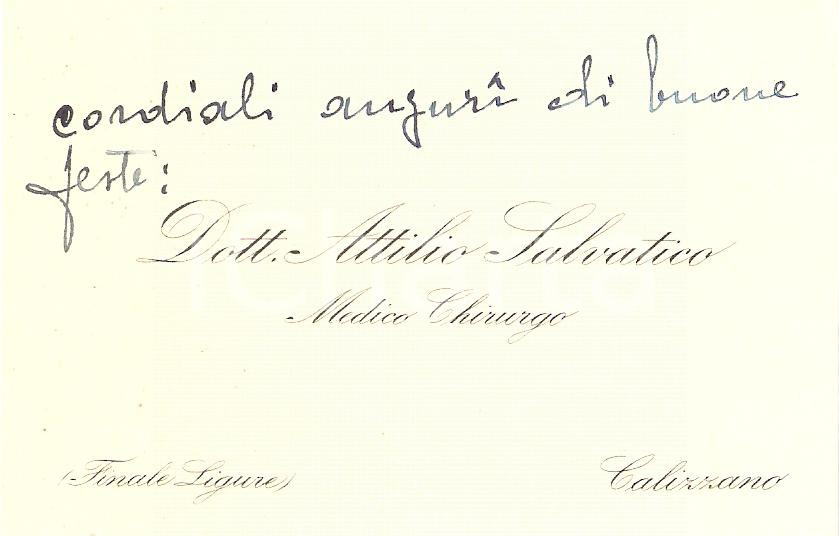 cordiali augurî di buone
feste:
Dott. Attilio Salvatico
Medico Chirurgo
(Finale Ligure)
Calizzano